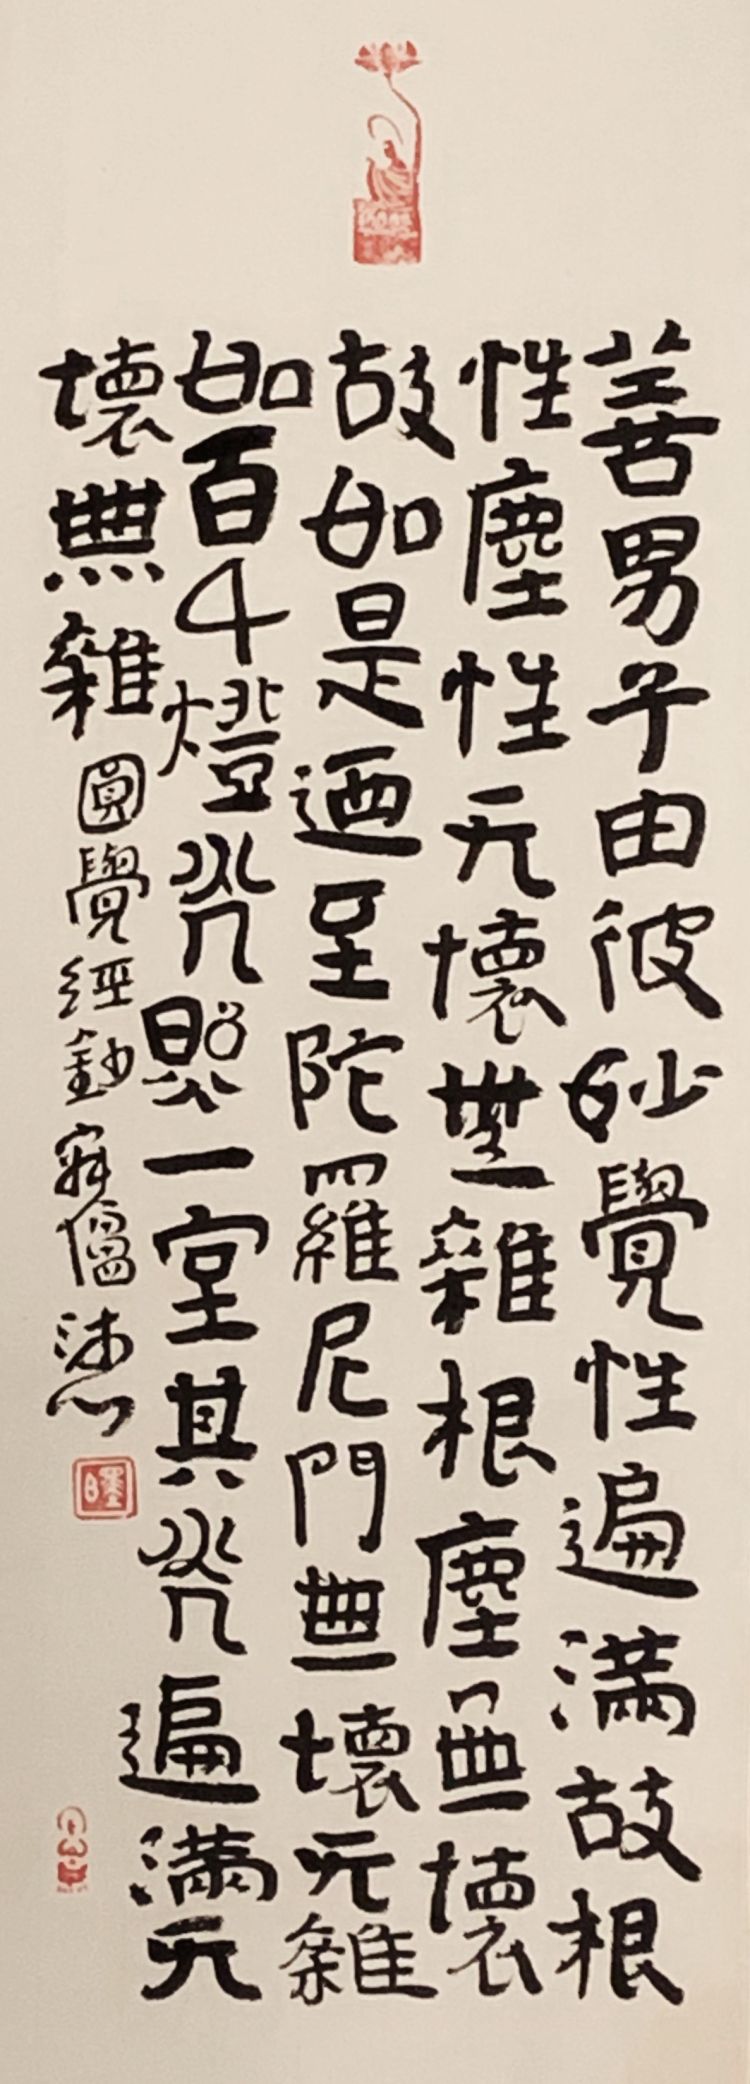 善男子由彼妙覺性遍滿故根
性塵性无壞無雜根塵無壞
故如是迺至陀羅尼門無壞无雜
如百千燈光照一室其光遍滿无
壞無雜
圓覺經鈔